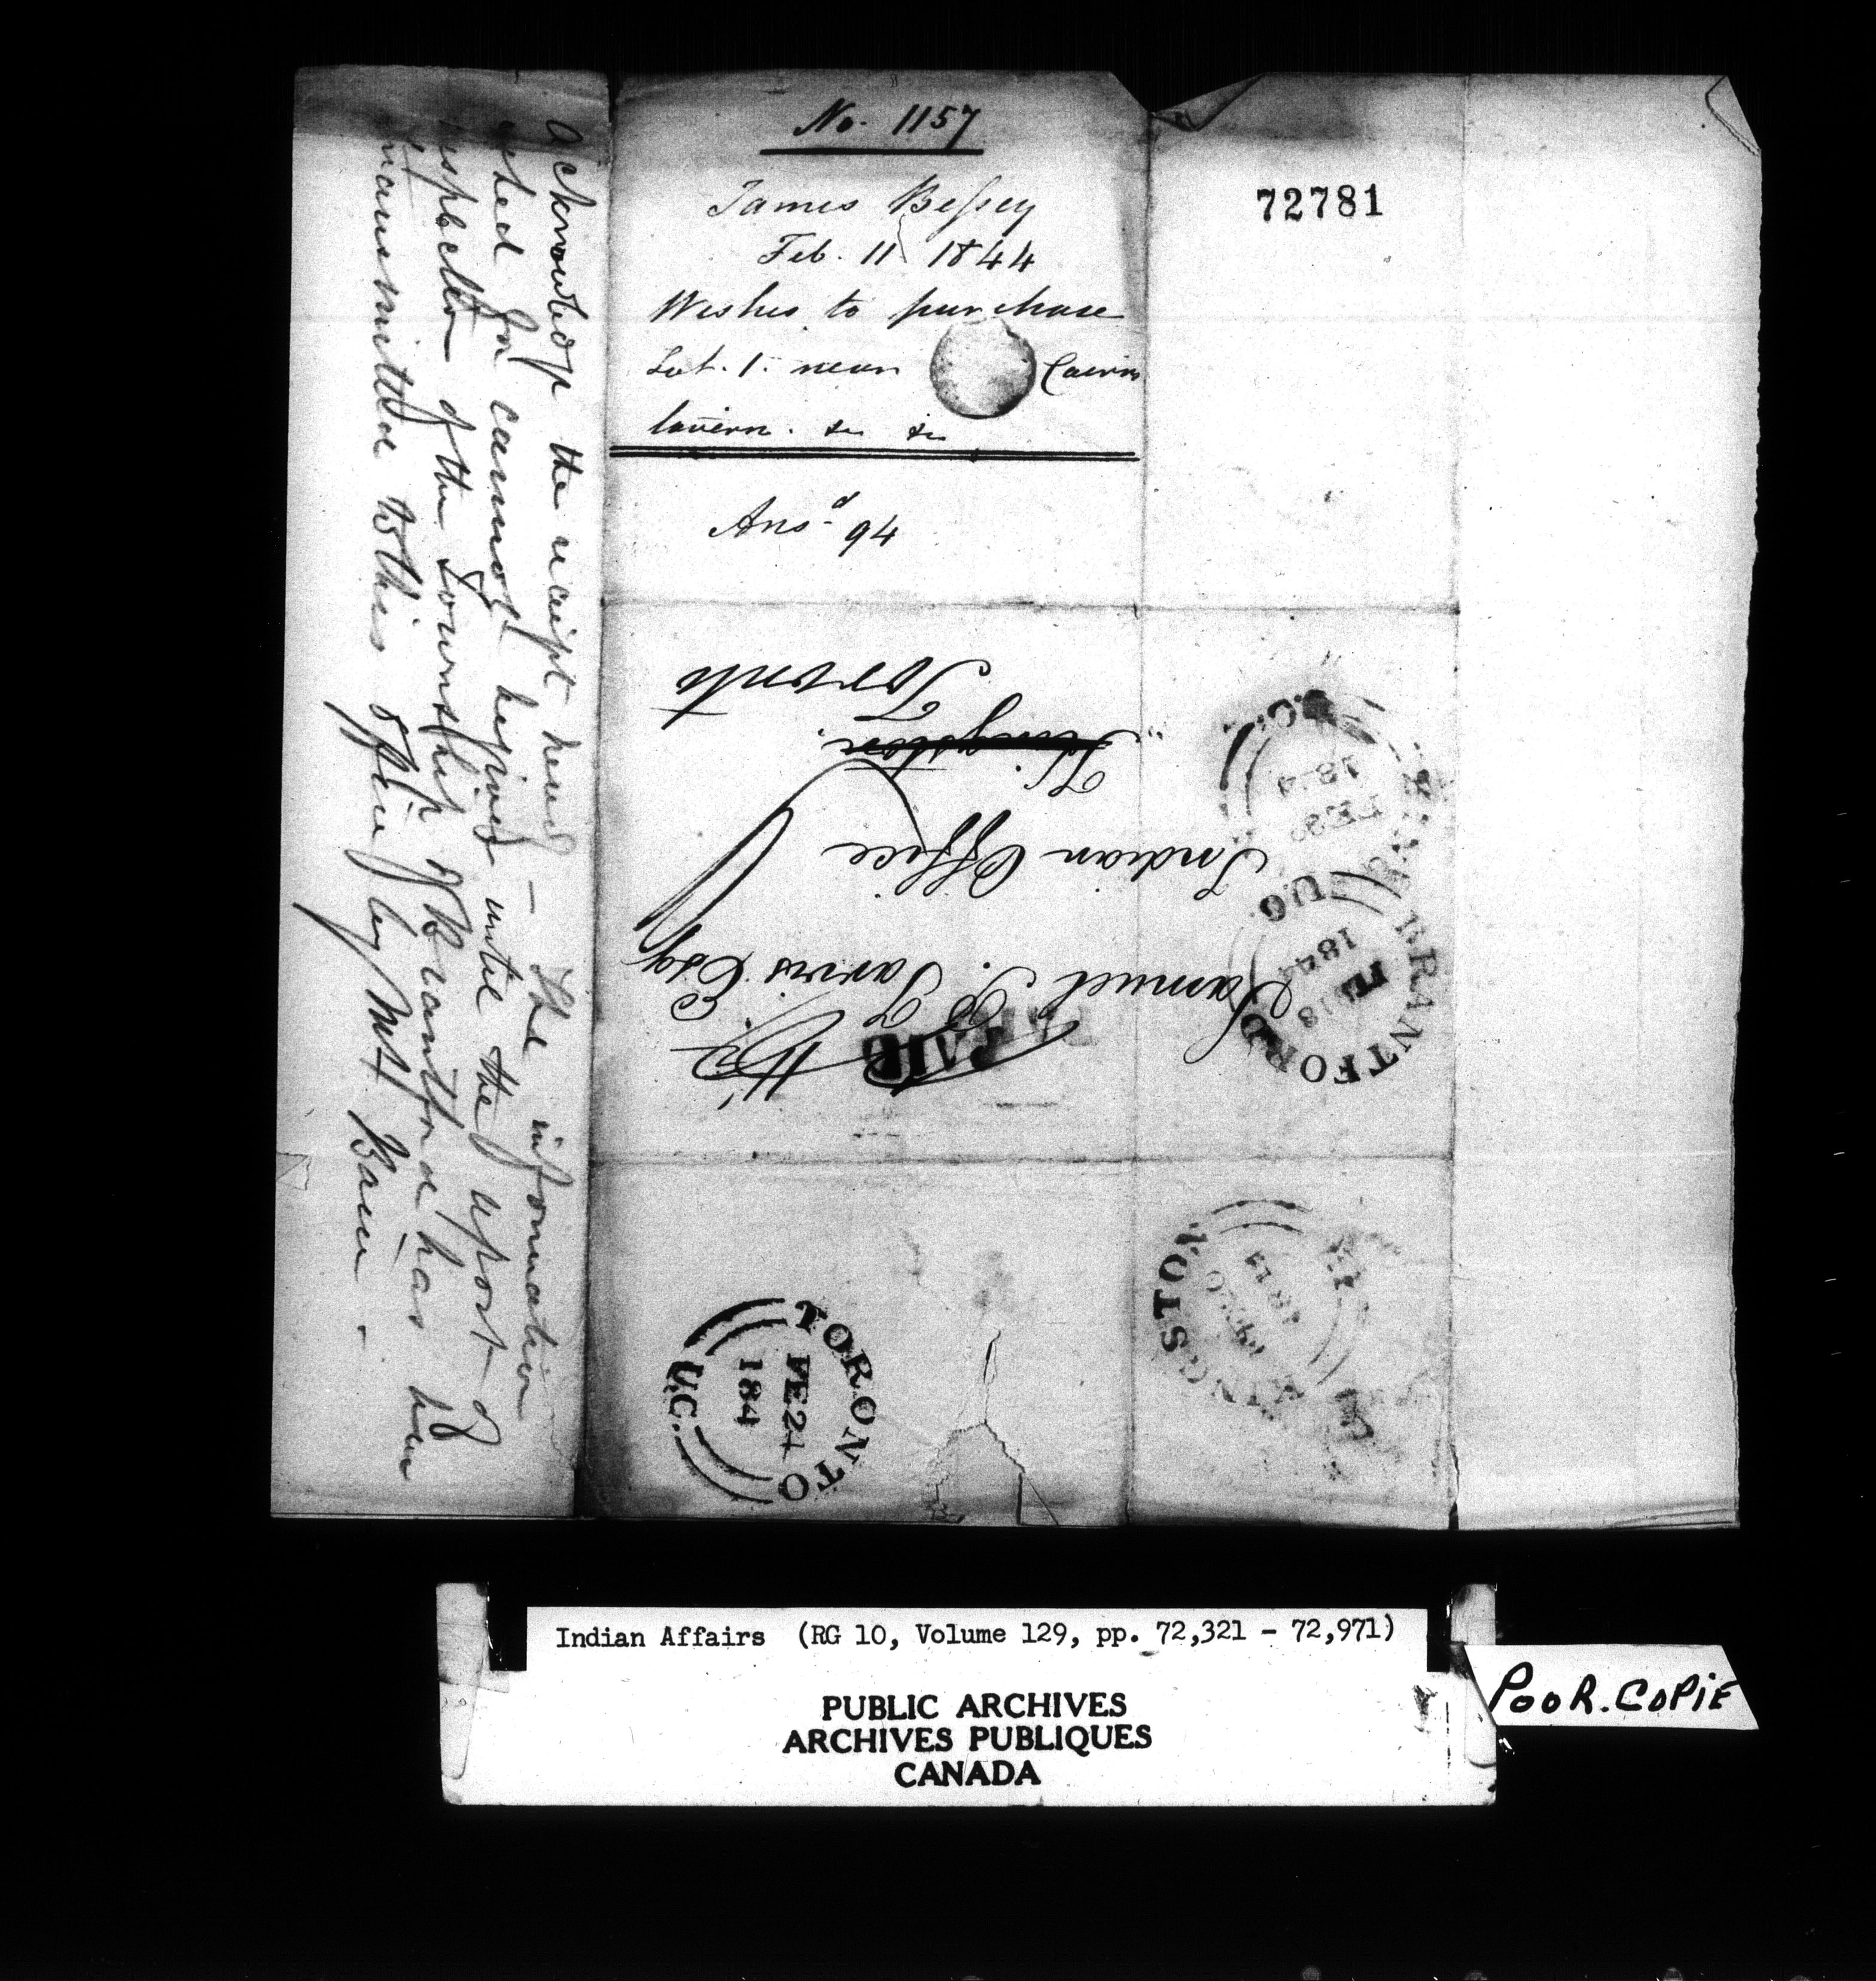 No. 1157
James Bessey
Feb. 11 1844
Wishes to purchase
Lot. 1. near Cairns
tavern. &c &c
Ansd 94
72781
Acknowledge the receipt hereof — The information
asked for cannot be given until the report of
inspection of the Township of Brantford has been
transmitted to this Office by Mr Bain.
Samuel P. Jarvis Esq
Indian Office
Kingston.
Toronto
PAID
BRANTFORD
1844
U.C.
U.C.
184
KINGSTON
TORONTO
FE 24
184
U.C.
Indian Affairs (RG 10, Volume 129, pp. 72,321 - 72,971)
PUBLIC ARCHIVES
ARCHIVES PUBLIQUES
CANADA
POOR.COPIE